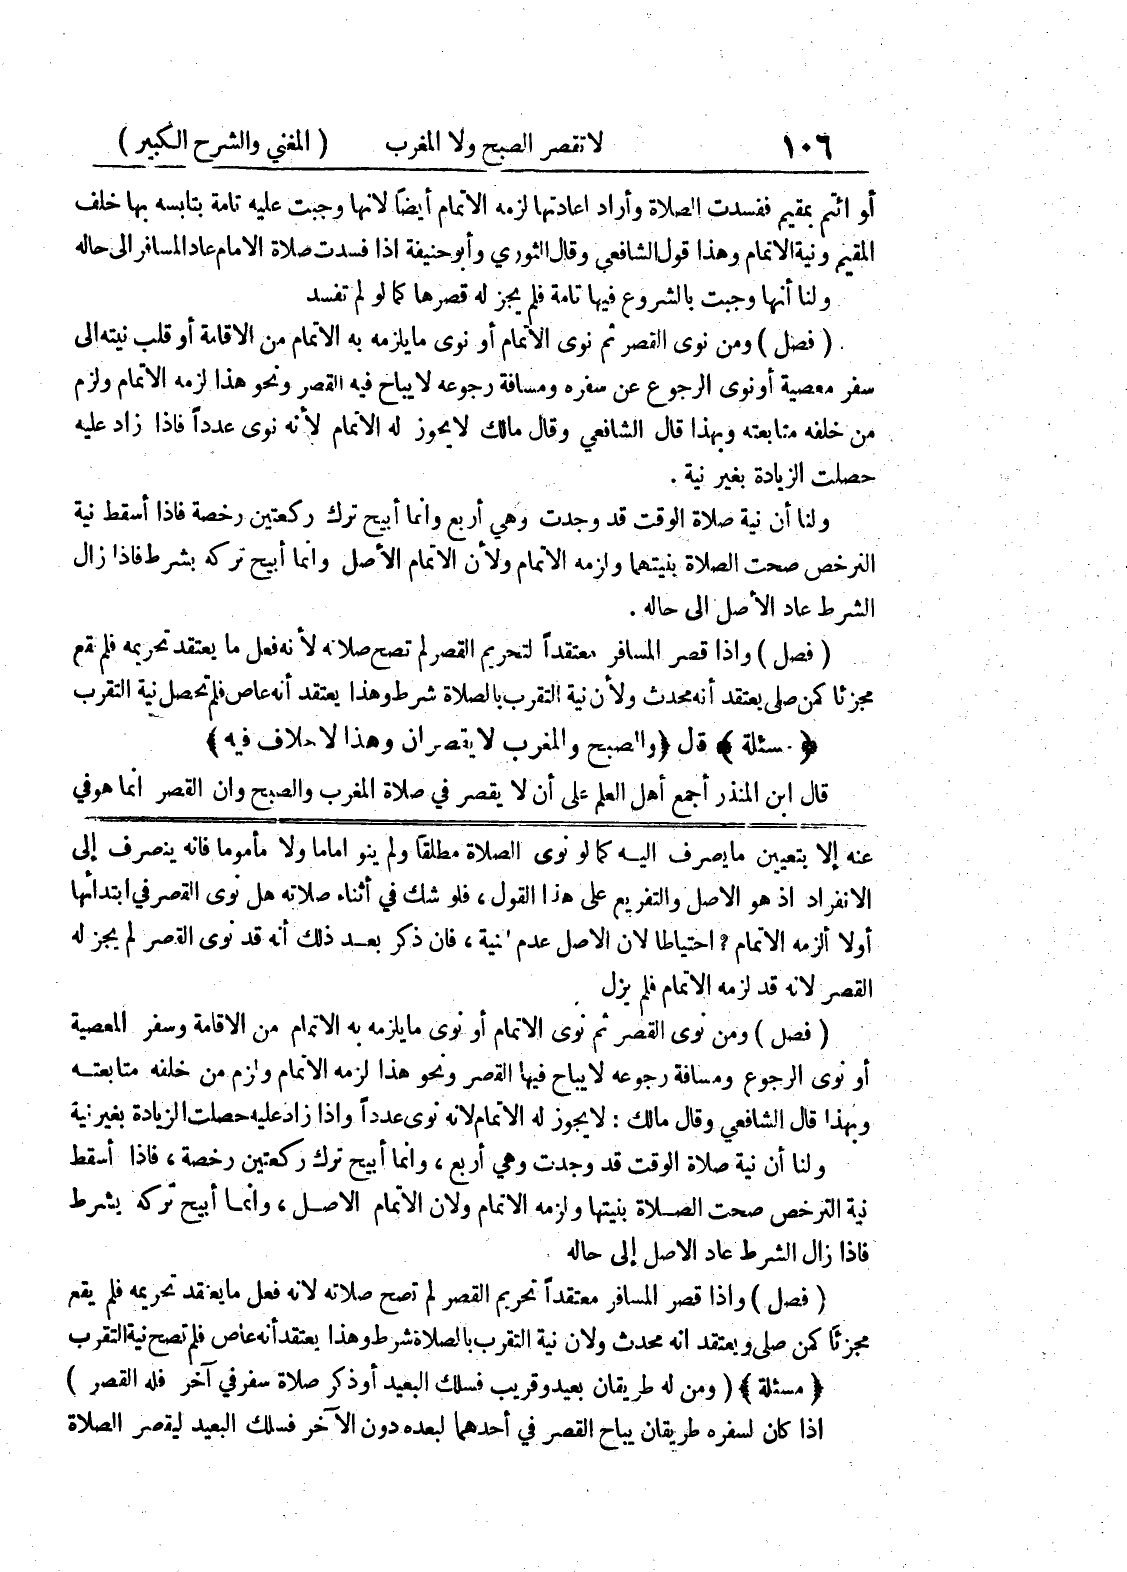 ١٠٦ لا تقصر الصبح ولا المغرب ( المغني والشرح الكبير )
أو ائتم بمقيم ففسدت الصلاة وأراد اعادتها لزمه الاتمام أيضاً لانها وجبت عليه تامة بتلبسه بها خلف
المقيم ونية الاتمام وهذا قول الشافعي وقال الثوري وأبو حنيفة اذا فسدت صلاة الامام عاد المسافر الى حاله
ولنا أنها وجبت بالشروع فيها تامة فلم يجز له قصرها كما لو لم تفسد
( فصل ) ومن نوى القصر ثم نوى الاتمام أو نوى ما يلزمه به الاتمام من الاقامة أو قلب نيته الى
سفر معصية أو نوى الرجوع عن سفره ومسافة رجوعه لا يباح فيه القصر ونحو هذا لزمه الاتمام ولزم
من خلفه متابعته وبهذا قال الشافعي وقال مالك لا يجوز له الاتمام لأنه نوى عدداً فاذا زاد عليه
حصلت الزيادة بغير نية .
ولنا أن نية صلاة الوقت قد وجدت وهي أربع وانما أبيح ترك ركعتين رخصة فاذا أسقط نية
الترخص صحت الصلاة بنيتهما ولزمه الاتمام ولأن الاتمام الأصل وانما أبيح تركه بشرط فاذا زال
الشرط عاد الأصل الى حاله .
( فصل ) واذا قصر المسافر معتقداً لتحريم القصر لم تصح صلاته لأنه فعل ما يعتقد تحريمه فلم تقع
مجزئا كمن صلى يعتقد أنه محدث ولأن نية التقرب بالصلاة شرط وهذا يعتقد أنه عاص فلم تحصل نية التقرب
﴿ مسئلة ﴾ قال ﴿ والصبح والمغرب لا يقصران وهذا لا خلاف فيه ﴾
قال ابن المنذر أجمع أهل العلم على أن لا يقصر في صلاة المغرب والصبح وان القصر انما هو في
عنه إلا بتعيين ما يصرف اليه كما لو نوى الصلاة مطلقا ولم ينو اماما ولا مأموما فانه ينصرف إلى
الانفراد اذ هو الاصل والتفريع على هذا القول ، فلو شك في أثناء صلاته هل نوى القصر في ابتدائها
أولا ألزمه الاتمام ؟ احتياطا لان الاصل عدم النية ، فان ذكر بعد ذلك أنه قد نوى القصر لم يجز له
القصر لانه قد لزمه الاتمام فلم يزل
( فصل ) ومن نوى القصر ثم نوى الاتمام أو نوى ما يلزمه به الاتمام من الاقامة وسفر المعصية
أو نوى الرجوع ومسافة رجوعه لا يباح فيها القصر ونحو هذا لزمه الاتمام ولزم من خلفه متابعته
وبهذا قال الشافعي وقال مالك : لا يجوز له الاتمام لانه نوى عدداً واذا زاد عليه حصلت الزيادة بغير نية
ولنا أن نية صلاة الوقت قد وجدت وهي أربع ، وانما أبيح ترك ركعتين رخصة ، فاذا أسقط
نية الترخص صحت الصلاة بنيتها ولزمه الاتمام ولان الاتمام الاصل ، وانما أبيح تركه بشرط
فاذا زال الشرط عاد الاصل إلى حاله
( فصل ) واذا قصر المسافر معتقداً تحريم القصر لم تصح صلاته لانه فعل ما يعتقد تحريمه فلم يقع
مجزئاً كمن صلى ويعتقد انه محدث ولان نية التقرب بالصلاة شرط وهذا يعتقد أنه عاص فلم تصح نية التقرب
﴿ مسئلة ﴾ ( ومن له طريقان بعيد وقريب فسلك البعيد أو ذكر صلاة سفر في آخر فله القصر )
اذا كان لسفره طريقان يباح القصر في أحدهما لبعده دون الآخر فسلك البعيد ليقصر الصلاة